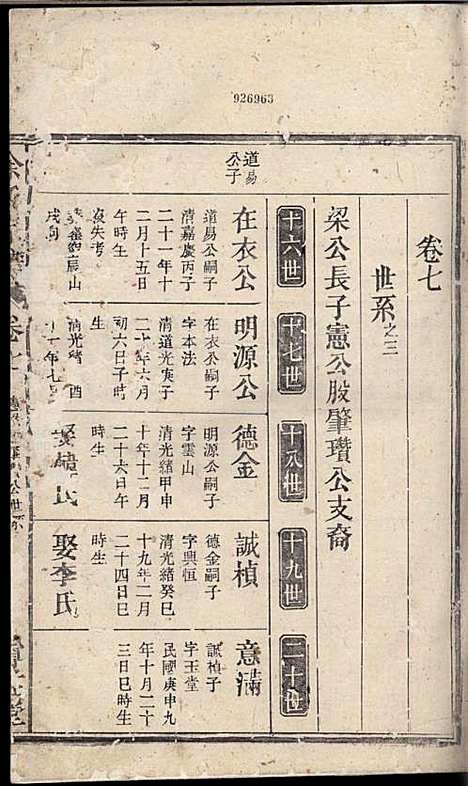 926963
卷七
世系之三
梁公長子憲公股肇瓚公支裔
十六世
十七世
十八世
十九世
二十世
道易
公子
在衣公
道易公嗣子
清嘉慶丙子
二十一年十
二月十五日
午時生
歿失考
明源公
在衣公嗣子
字本法
清道光庚子
二十年六月
初六日子時
生
德金
明源公嗣子
字雲山
清光緒甲申
十年十二月
二十六日午
時生
氏
誠楨
德金嗣子
字興恒
清光緒癸巳
十九年二月
二十四日巳
時生
娶李氏
意滿
誠楨子
字玉堂
民國庚申九
年十月二十
三日巳時生